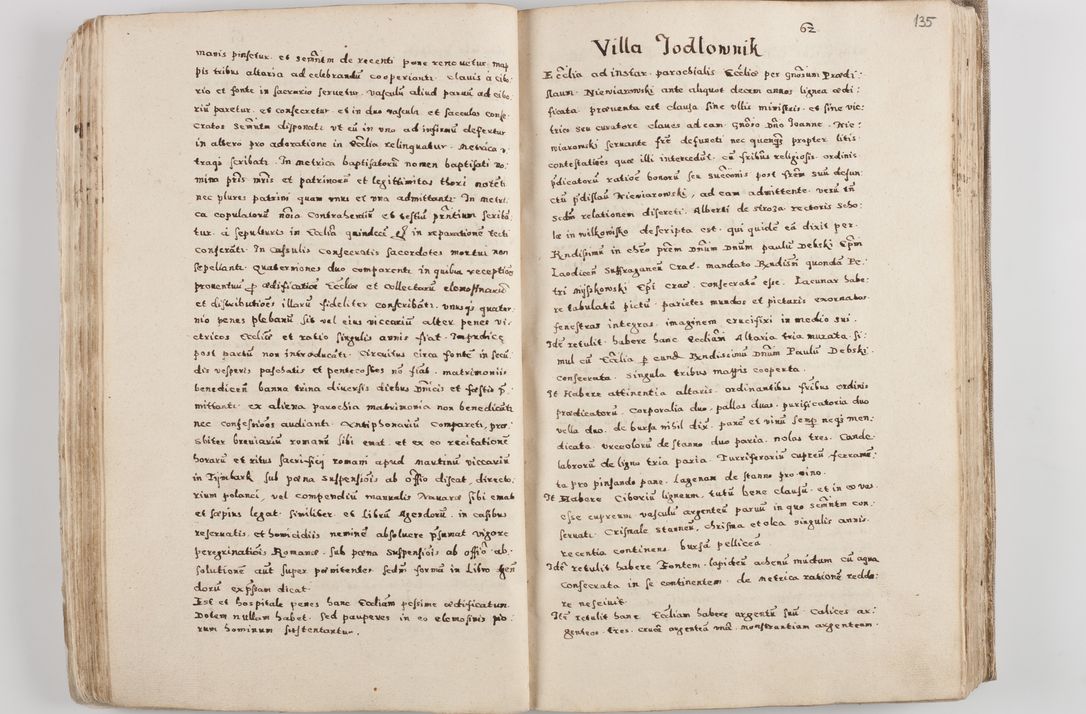 manis pinsetur. et semñtm de recenti pane renovetur. map
pis tribus altaria ad celebrandū cooperianti. clavis a cibo
rio et fonte in sacrario servetur. vasculū aliud parvū ad cibo
riū paretur. et consecretur. et in duo vascula et sacculos conse
cratos disponati. ut cū in uno ad infirmū defertur
in altero pro adoratione in Ecclia relinquatur. Metrica
scribati. In metrica baptisatorū nomen baptisati no:
mina pris mris et patrinorū et legittimitas thori
nec plures patrini quam unus et una admittanti. In metri
ca copulatorū noīa contrahentiū et testiū
tur. a sepulturis in Ecclia in reparatione tecti
conserati. In capsulis consecratis sacerdotes mortui non
sepelianti. Quaterniones duo comparenti in quibus receptio
proventuū p ædificatiōe Eccliæ et collectarū elemosinariū
et distributiōes illarū fideliter conscribāti. unus quater
nio penes plebanū sit vel eius viccariū alter penes vi
ctricos Eccliæ et ratio singulis annis fiat.
post partū non introducāti. Circuitus circa fontē in secū
dis vesperis paschatis et pentecostes nō fiāt. matrimoniis
benedicen banna trina diversis diebus Dnicis et festis p
mittanti. ex aliena parochia matrimonia non benedicāti
nec confessiōes audianti. Antiphonariū compareti, præ:
sbiter breviariū romanū sibi emat. et ex eo recitationē
horarū et ritus sacrificij romani apud martinū viccariū
in Tijmbark sub pœna suspensiōis ab offīo discat, directo
rium polanci, vel compendiū manualis Navaræ sibi emat
et sæpius legat. similiter et Librū Agendorū. in casibus
reservatis. et homicidiis neminē absolvere p̄sumat vigore
peregrinatiōis Romanæ. sub pœna suspensiōis ab offīo ab:
solutionē aūt super pœnitentes sedm formā in Libro Agen
dorū exp̄ssam dicat.
Est et hospitale penes hanc Eccliam pessime ædificatum.
Dotem nullam habet. sed pauperes in eo elemosinis pio
rum hominum sustentantur.
62
135
Villa Jodlownik
Ecclia ad instar parochialis Eccliæ per gnosum Prædi:
slaum. Nieviarowski ante aliquot decem annos lignea ædi:
ficata. proventa est clausa sine ullis ministris. et sine vic:
trico seu curatore claves ad eam gnoso Dno Joanne. Nie:
wiarowski servante fre defuncti nec quenq propter litis
contestatiōes quæ illi intercedūt. cū fribus religiosis ordinis
p̄dicatorū ratiōe bonorū seu succonis post frem suū defun:
ctū p̄dislaū Nieviarowski, ad eam admittente. verū tn̄
sedm relationem discreti. Alberti de stroza rectoris scho:
læ in wilkowisko descripta est. qui quidē eā dixit per.
Rndissimū in chro prem Dnum Dnum paulū Debski Epm
Laodicen̄ Suffraganeū Crac. mandato Rndissi quondā Pe:
tri mijskowski Epi crac. consecratā esse. Lacunar habe:
re tabulatū pictū. parietes mundos et picturis exornatos
fenestras integras. imaginem crucifixi in medio sui.
Idē retulit habere hanc Eccliam Altaria tria murata. si:
mul cū Ecclia p eund Rndissimū Dnum Paulū Debski.
consecrata. singula tribus mappis cooperta.
It Habere attinentia altaris. ordinantibus fribus ordinis
prædicatorū. Corporalia duo. pallas duas. purificatoria duo
vella duo. de bursa nihil dix. panē et vinū semp neqi men:
dicata. urceolorū de stanno duo paria. nolas tres. Cande:
labrorū de ligno tria paria. Turriferariū cupreū ferramē:
ta pro pinsando pane. Lagenam de stanno pro vino.
It Habere Ciborium ligneum, tutū bene clausū. et in eo vas
esse cupreum vasculū argenteū parvū in quo semñtm con:
servati. Crismale stanneū, chrisma et olea singulis annis.
recentia continens. bursa pellicea.
Idē retulit habere Fontem lapideū ahenū mūdum cū aqua
consecrata in se continentem. de metrica rationē redde:
re nescivit.
Itē retulit hanc Eccliam habere argentū suū. Calices ar:
genteos tres. crucē argenteā unā. monstrantiam argenteam.